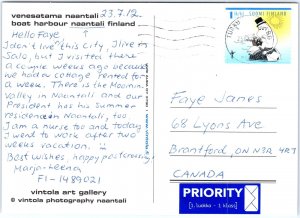 venesatama naantali
boat harbour naantali finland
23.7.12.
Hello Faye,
I don't live in this city, I live in
Salo, but I visited there
a couple weeks ago because
we had a cottage rented for
a week. There is the Moomin
Valley in Naantali and our
President has his Summer
residence in Naantali, too
I am a nurse too and today
I went to work after two
weeks vacation.
Best wishes, happy postcrossing
Marja-Leena
FI-1489021
vintola art gallery
© vintola photography naantali
SUOMI FINLAND
Faye Janes
68 Lyons Ave
Brantford, ON N3R 4R7
CANADA
PRIORITY
1. luokka - 1. klass